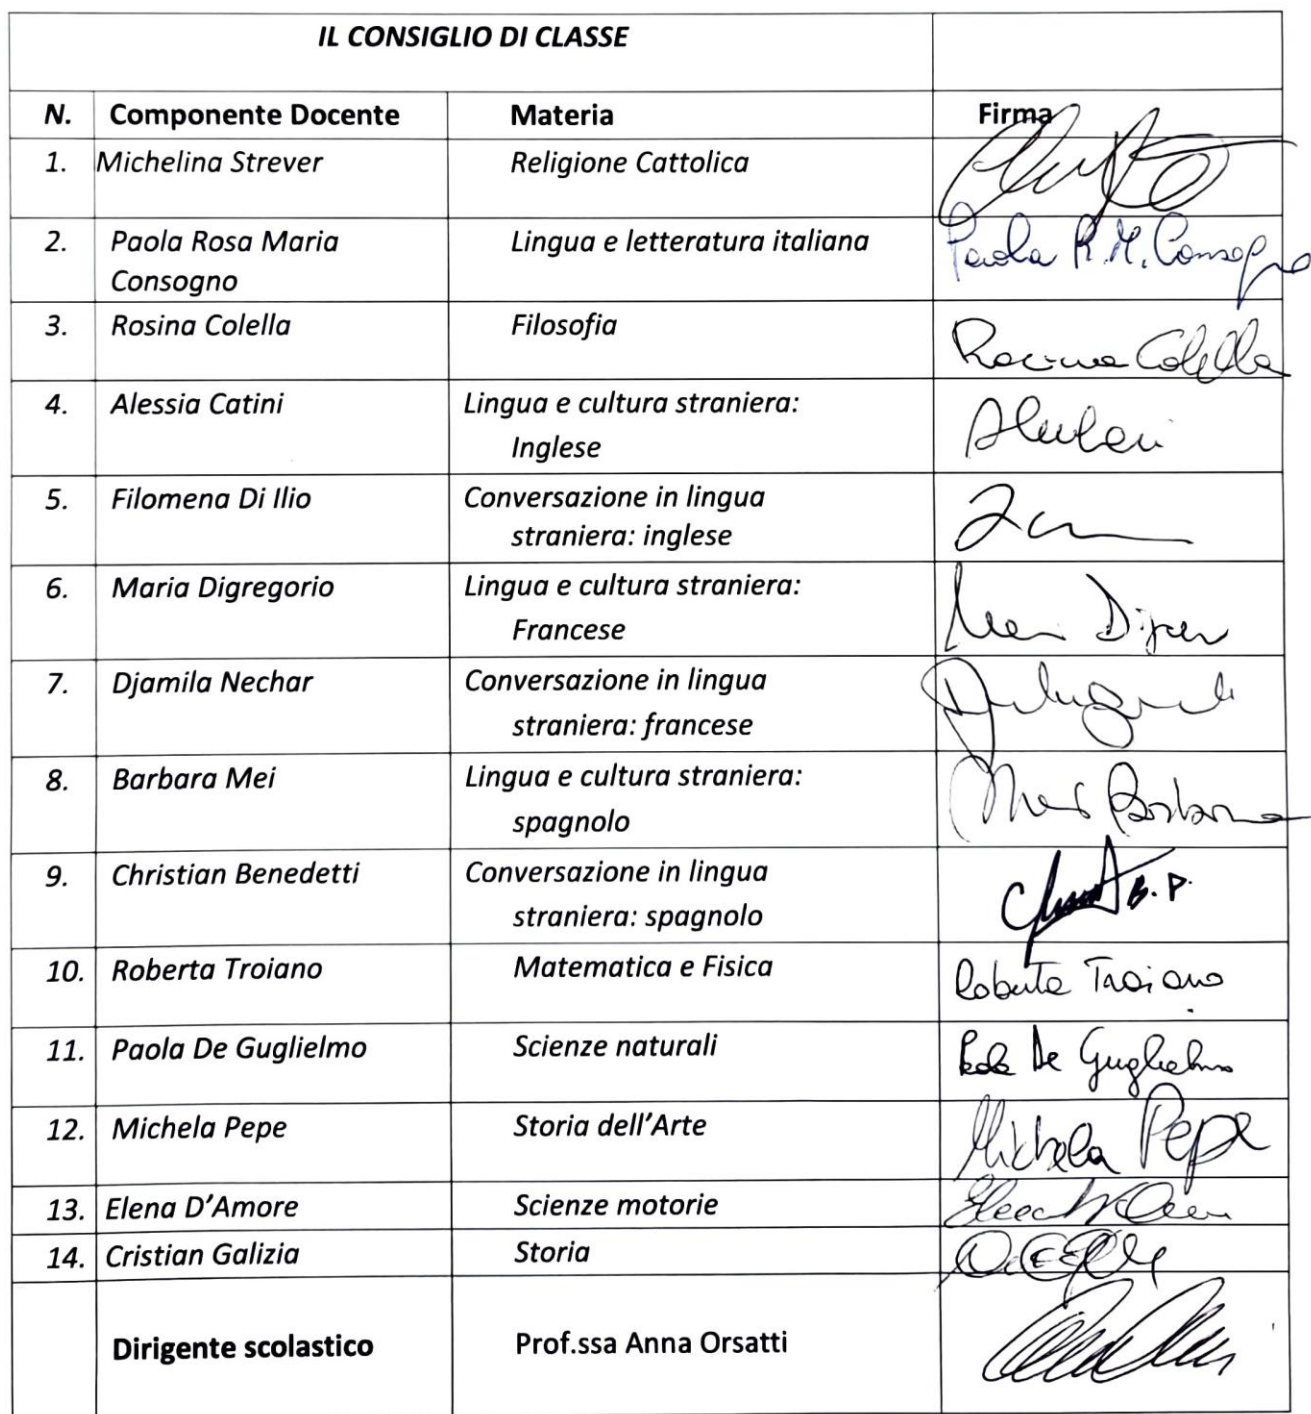 IL CONSIGLIO DI CLASSE
N. Componente Docente Materia Firma
1. Michelina Strever Religione Cattolica
2. Paola Rosa Maria Lingua e letteratura italiana Paola R.M. Consogno
Consogno
3. Rosina Colella Filosofia Rosina Colella
4. Alessia Catini Lingua e cultura straniera:
Inglese
5. Filomena Di Ilio Conversazione in lingua
straniera: inglese
6. Maria Digregorio Lingua e cultura straniera:
Francese
7. Djamila Nechar Conversazione in lingua
straniera: francese
8. Barbara Mei Lingua e cultura straniera: Mei Barbara
spagnolo
9. Christian Benedetti Conversazione in lingua B.P.
straniera: spagnolo
10. Roberta Troiano Matematica e Fisica Roberta Troiano
11. Paola De Guglielmo Scienze naturali Paola De Guglielmo
12. Michela Pepe Storia dell'Arte Michela Pepe
13. Elena D'Amore Scienze motorie
14. Cristian Galizia Storia
Dirigente scolastico Prof.ssa Anna Orsatti